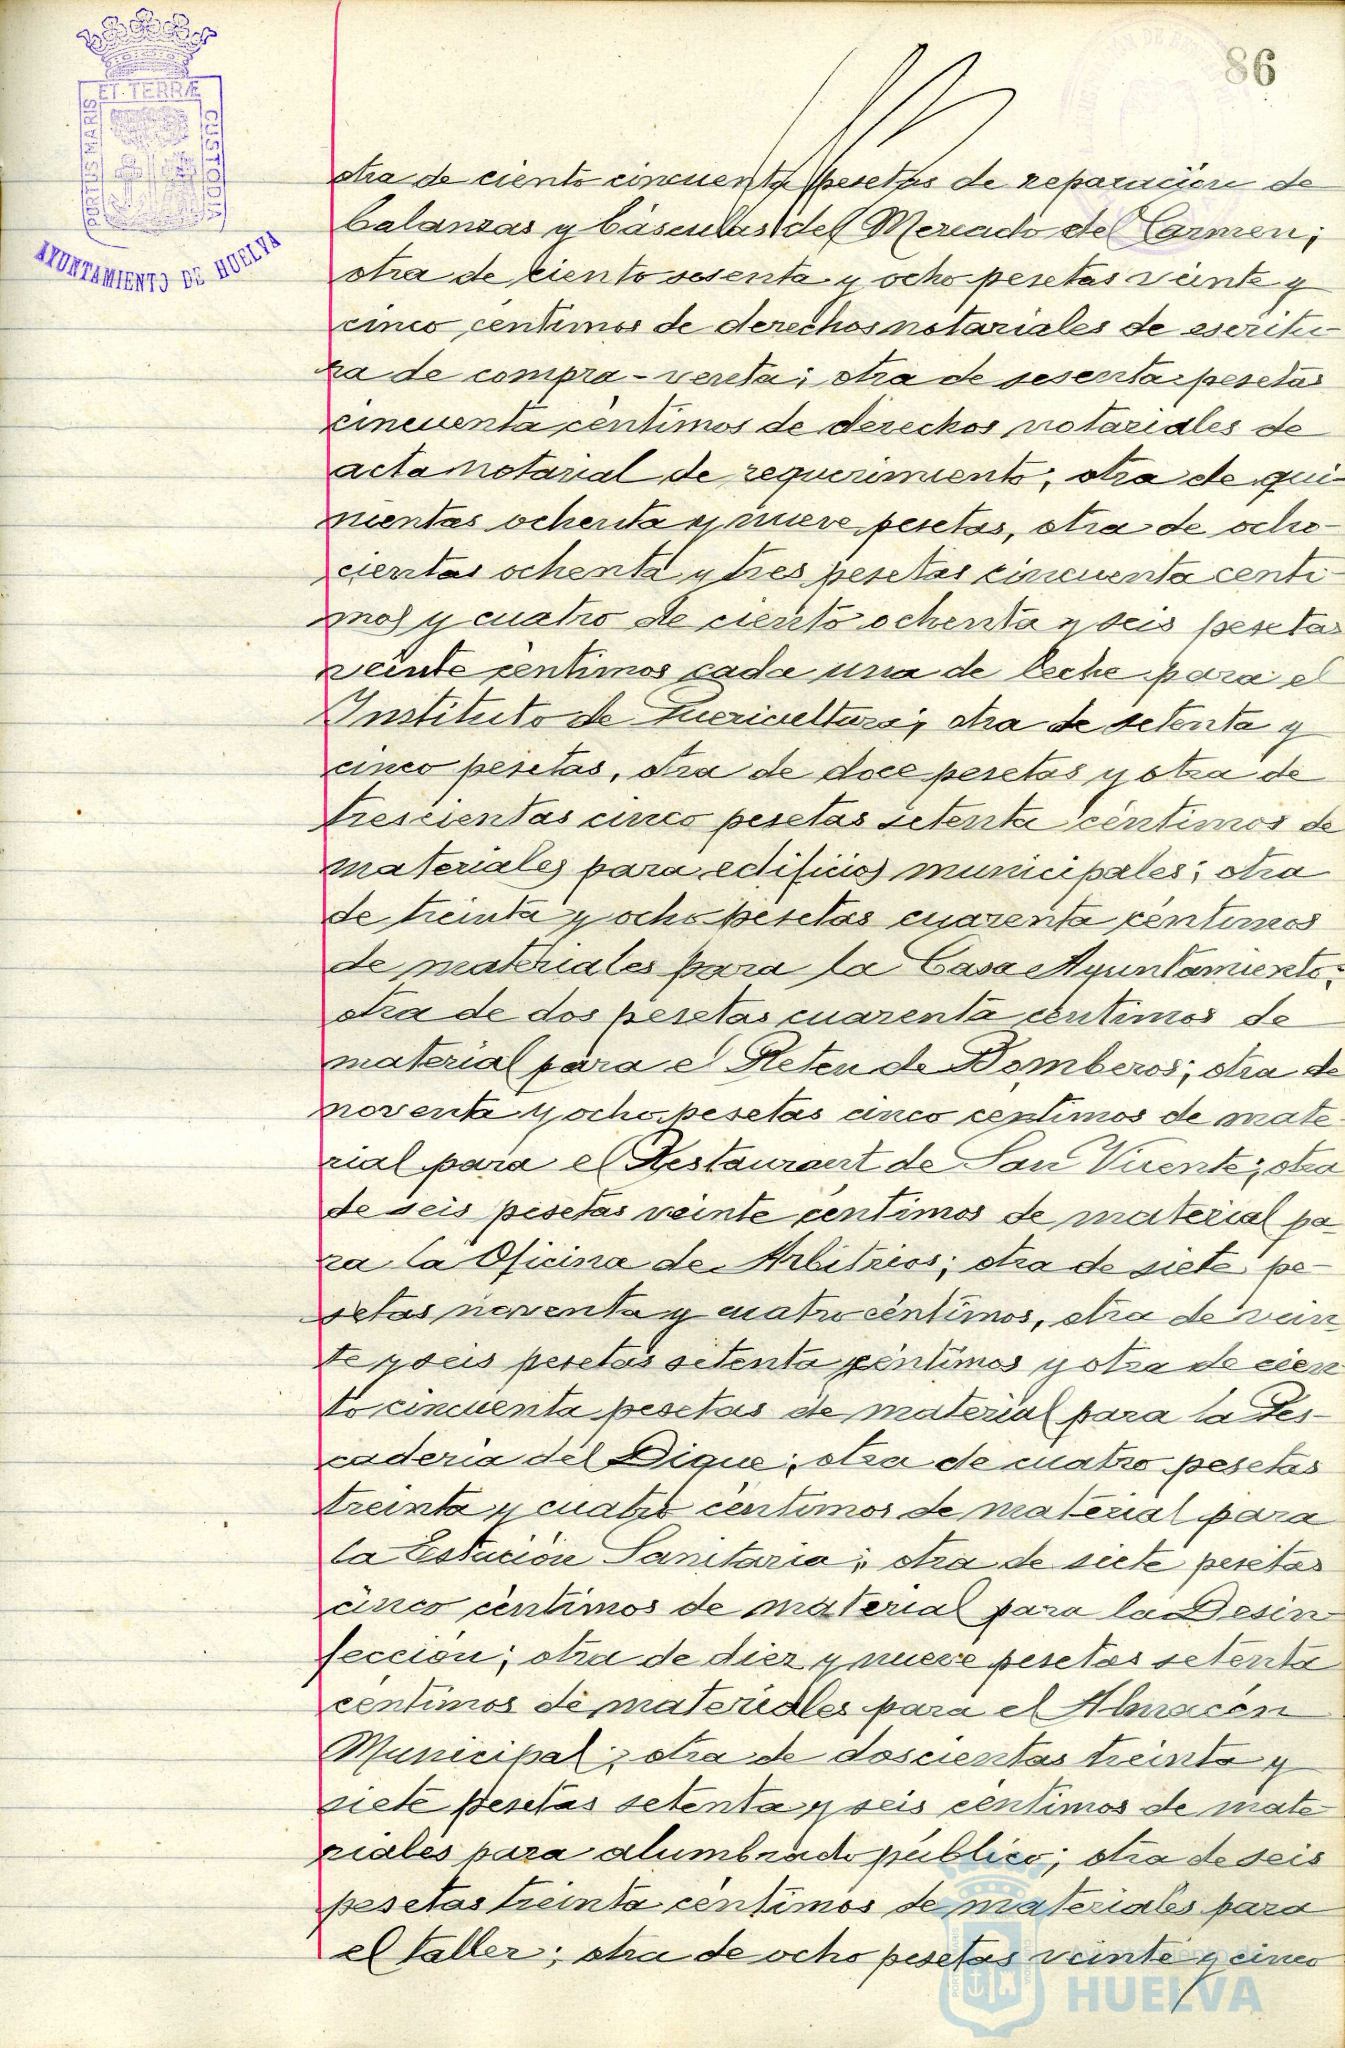 ET. TERRÆ
PORTUS MARIS
CUSTODIA
AYUNTAMIENTO DE HUELVA
86
otra de ciento cincuenta pesetas de reparación de
balanzas y básculas del Mercado del Carmen;
otra de ciento sesenta y ocho pesetas veinte y
cinco céntimos de derechos notariales de escritu-
ra de compra-venta; otra de sesenta pesetas
cincuenta céntimos de derechos notariales de
acta notarial de requerimiento; otra de qui-
nientas ochenta y nueve pesetas, otra de ocho-
cientas ochenta y tres pesetas cincuenta cénti-
mos y cuatro de ciento ochenta y seis pesetas
veinte céntimos cada una de leche para el
Instituto de Puericultura; otra de setenta y
cinco pesetas, otra de doce pesetas y otra de
trescientas cinco pesetas setenta céntimos de
materiales para edificios municipales; otra
de treinta y ocho pesetas cuarenta céntimos
de materiales para la Casa Ayuntamiento;
otra de dos pesetas cuarenta céntimos de
material para el Reten de Bomberos; otra de
noventa y ocho pesetas cinco centimos de mate-
rial para el Restaurant de San Vicente; otra
de seis pesetas veinte céntimos de material pa-
ra la Oficina de Arbitrios; otra de siete pe-
setas noventa y cuatro céntimos, otra de vein-
te y seis pesetas setenta céntimos y otra de cien-
to cincuenta pesetas de material para la Pes-
caderia del Dique; otra de cuatro pesetas
treinta y cuatro céntimos de material para
la Estación Sanitaria; otra de siete pesetas
cinco céntimos de material para la Desin-
fección; otra de diez y nueve pesetas setenta
céntimos de materiales para el Almacén
Municipal; otra de doscientas treinta y
siete pesetas setenta y seis céntimos de mate-
riales para alumbrado público; otra de seis
pesetas treinta céntimos de materiales para
el taller; otra de ocho pesetas veinte y cinco
HUELVA